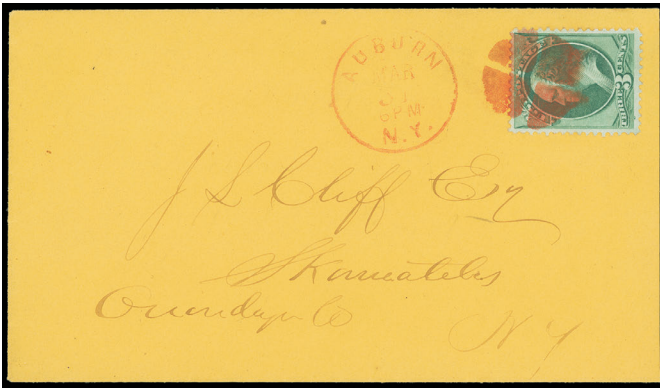 AUBURN
MAR
6PM
N.Y.
THREE CENTS
J L Cliff Esq
Skaneateles
Onondaga Co
N Y